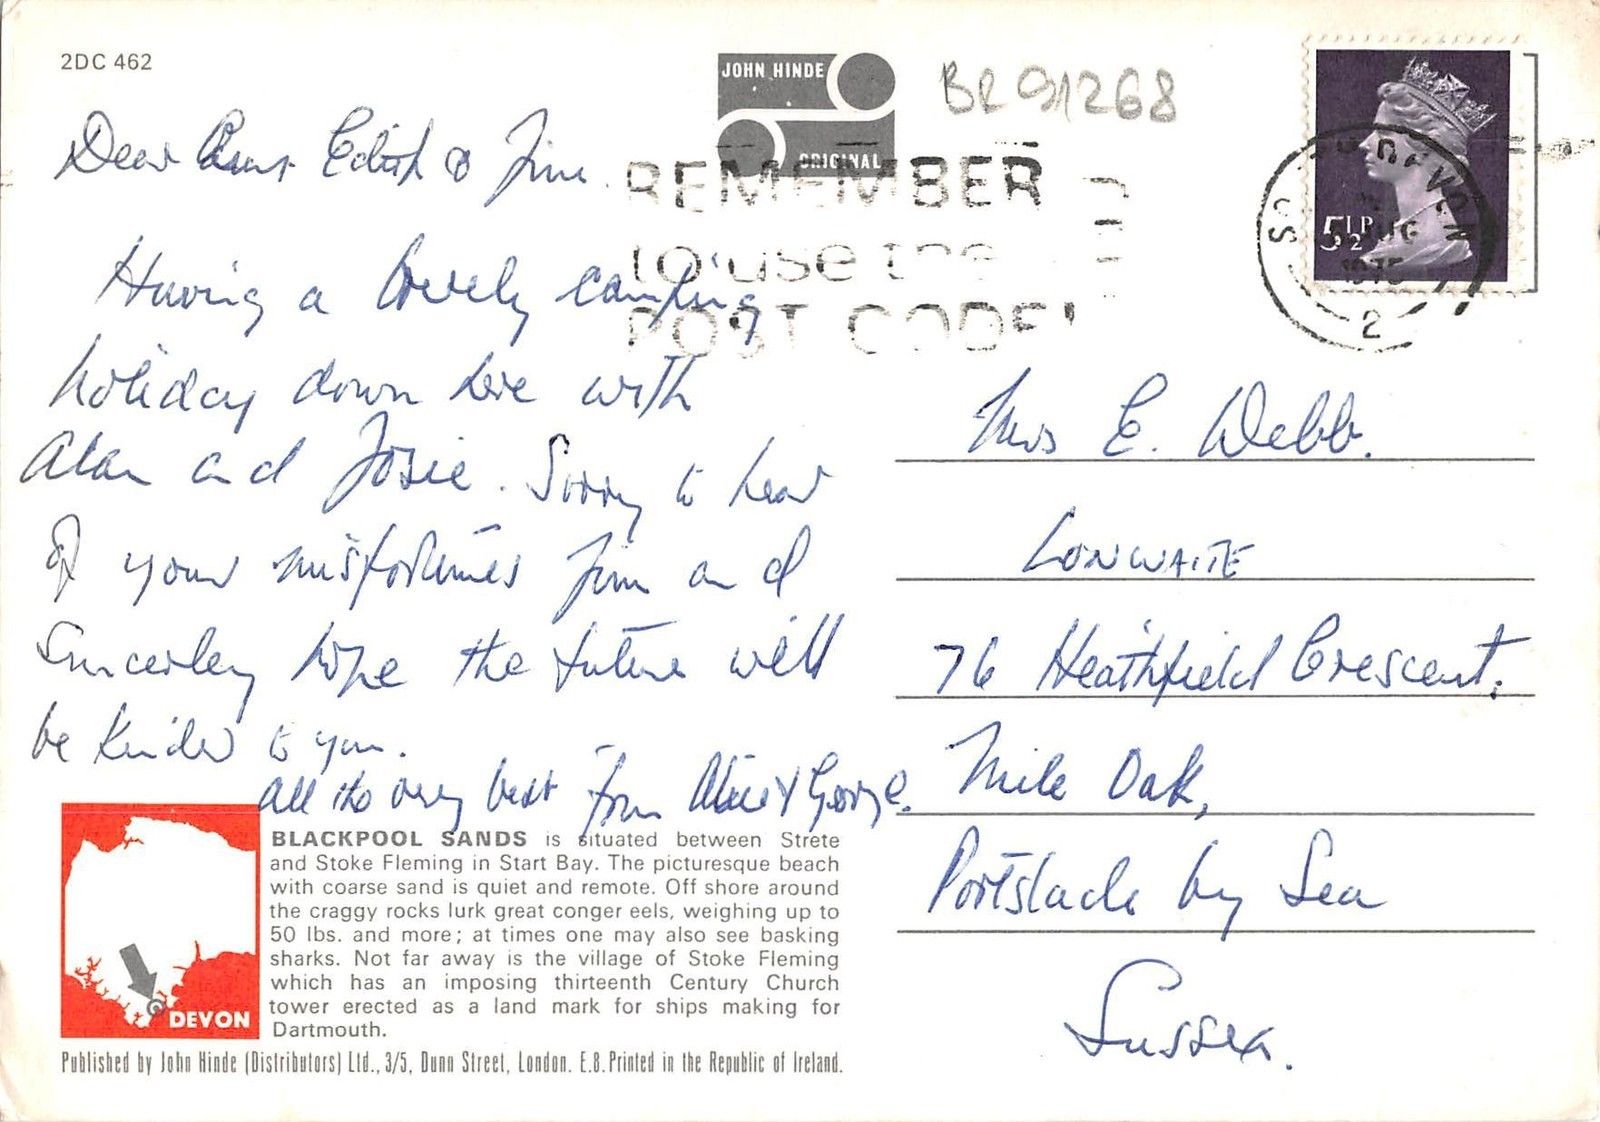 2DC 462
JOHN HINDE
ORIGINAL
BR 91268
REMEMBER
to use the
POST CODE
5½P
SOUTH DEVON
AUG
1975
2
Dear Aunt Edith & Jim.
Having a lovely camping
holiday down here with
Alan and Josie. Sorry to hear
of your misfortunes Jim and
Sincerley hope the future will
be kinder to you.
All the very best from Alice & George.
Mrs E. Webb.
LONWAITE
76 Heathfield Crescent,
Mile Oak,
Portslade by Sea
Sussex.
BLACKPOOL SANDS is situated between Strete
and Stoke Fleming in Start Bay. The picturesque beach
with coarse sand is quiet and remote. Off shore around
the craggy rocks lurk great conger eels, weighing up to
50 lbs. and more; at times one may also see basking
sharks. Not far away is the village of Stoke Fleming
which has an imposing thirteenth Century Church
tower erected as a land mark for ships making for
Dartmouth.
DEVON
Published by John Hinde (Distributors) Ltd., 3/5, Dunn Street, London. E.8. Printed in the Republic of Ireland.